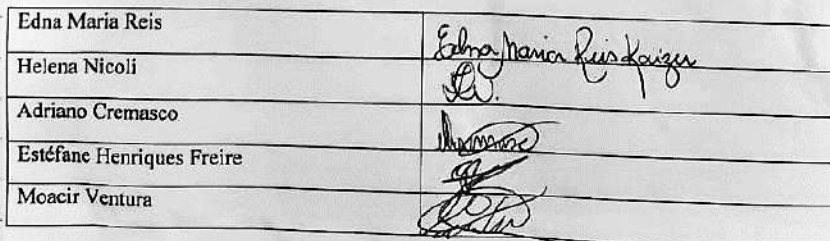 Edna Maria Reis
Edna Maria Reis Kaizer
Helena Nicoli
Adriano Cremasco
Estéfane Henriques Freire
Moacir Ventura